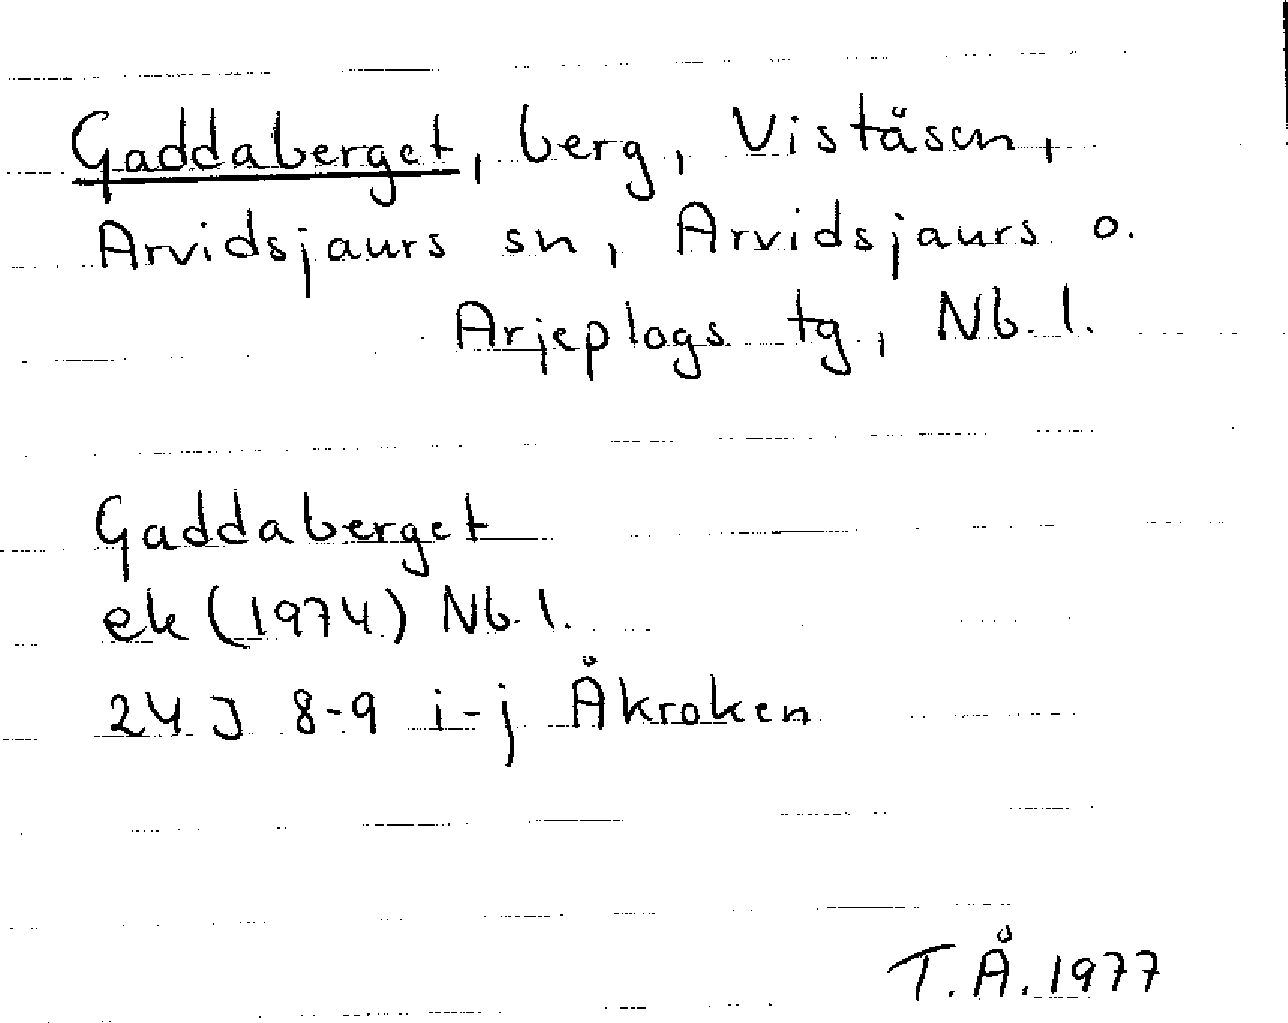 Gaddaberget, berg, Viståsen,
Arvidsjaurs sn, Arvidsjaurs o.
Arjeplogs tg, Nb. l.
Gaddaberget
ek (1974) Nb. l.
24 J 8-9 i-j Åkroken
T. Å. 1977